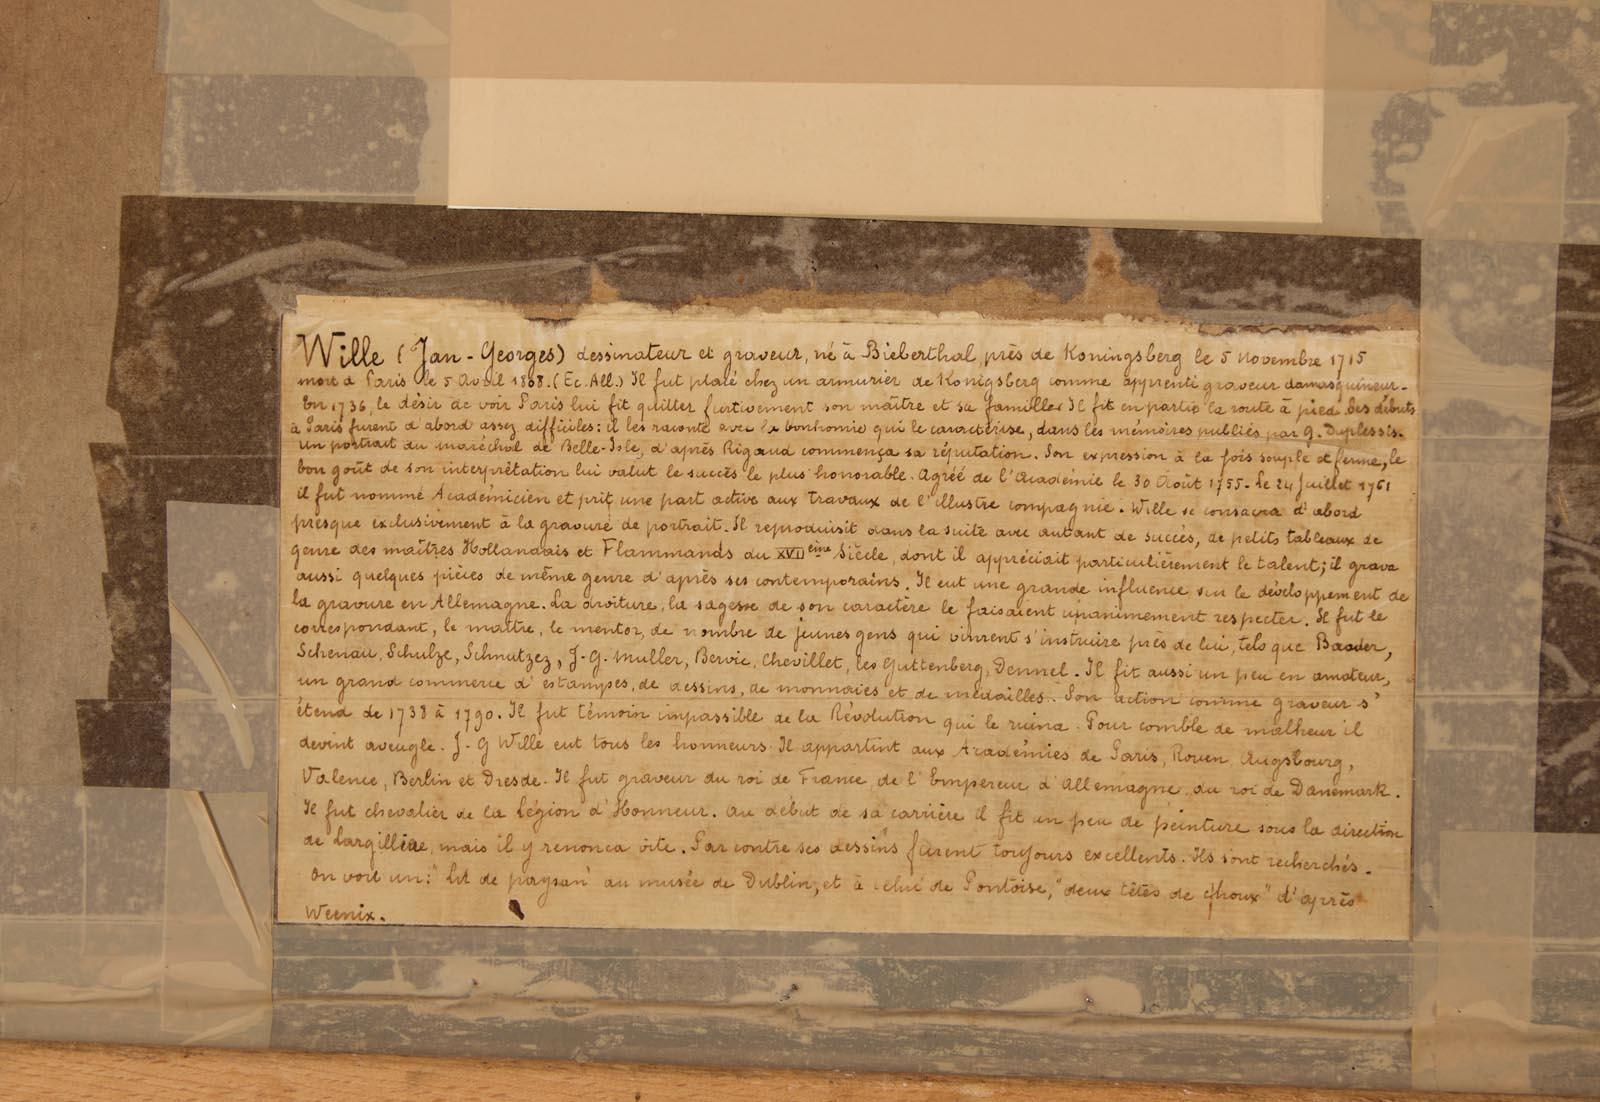 Wille (Jan-Georges) dessinateur et graveur, né à Bieberthal près de Koningsberg le 5 novembre 1715
mort à Paris le 5 Avril 1808. (Ec. All.) Il fut placé chez un armurier de Konigsberg comme apprenti graveur damasquineur.
En 1736, le désir de voir Paris lui fit quitter furtivement son maître et sa famille. Il fit en partie la route à pied. Ses débuts
à Paris furent d'abord assez difficiles: il les raconte avec la bonhomie qui le caractérise, dans les mémoires publiés par G. Duplessis.
un portrait du maréchal de Belle-Isle, d'après Rigaud commença sa réputation. Son expression à la fois souple et ferme, le
bon goût de son interprétation lui valut le succès le plus honorable. Agréé de l'Académie le 30 Août 1755. Le 24 Juillet 1761
il fut nommé Académicien et prit une part active aux travaux de l'illustre compagnie. Wille se consacra d'abord
presque exclusivement à la gravure de portrait. Il reproduisit dans la suite avec autant de succès, de petits tableaux de
genre des maîtres Hollandais et Flammands du XVIIème Siècle, dont il appréciait particulièrement le talent; il grava
aussi quelques pièces de même genre d'après ses contemporains. Il eut une grande influence sur le développement de
la gravure en Allemagne. La droiture, la sagesse de son caractère le faisaient unanimement respecter. Il fut le
correspondant, le maître, le mentor, de nombre de jeunes gens qui vinrent s'instruire près de lui, tels que Baader,
Schenau, Schulze, Schmutzez, J-G. Muller, Bervic, Chevillet, les Guttenberg, Dennel. Il fit aussi un peu en amateur,
un grand commerce d'estampes, de dessins, de monnaies et de médailles. Son action comme graveur s'
étend de 1738 à 1790. Il fut témoin impassible de la Révolution qui le ruina. Pour comble de malheur il
devint aveugle. J-G Wille eut tous les honneurs. Il appartint aux Académies de Paris, Rouen, Augsbourg,
Valence, Berlin et Dresde. Il fut graveur du roi de France, de l'Empereur d'Allemagne, du roi de Danemark.
Il fut chevalier de la Légion d'Honneur. Au début de sa carrière il fit un peu de peinture sous la direction
de Largilliae, mais il y renonca vite. Par contre ses dessins furent toujours excellents. Ils sont recherchés.
On voit un: "Lit de paysan" au musée de Dublin, et à celui de Pontoise, "deux têtes de choux" d'après
Weenix.